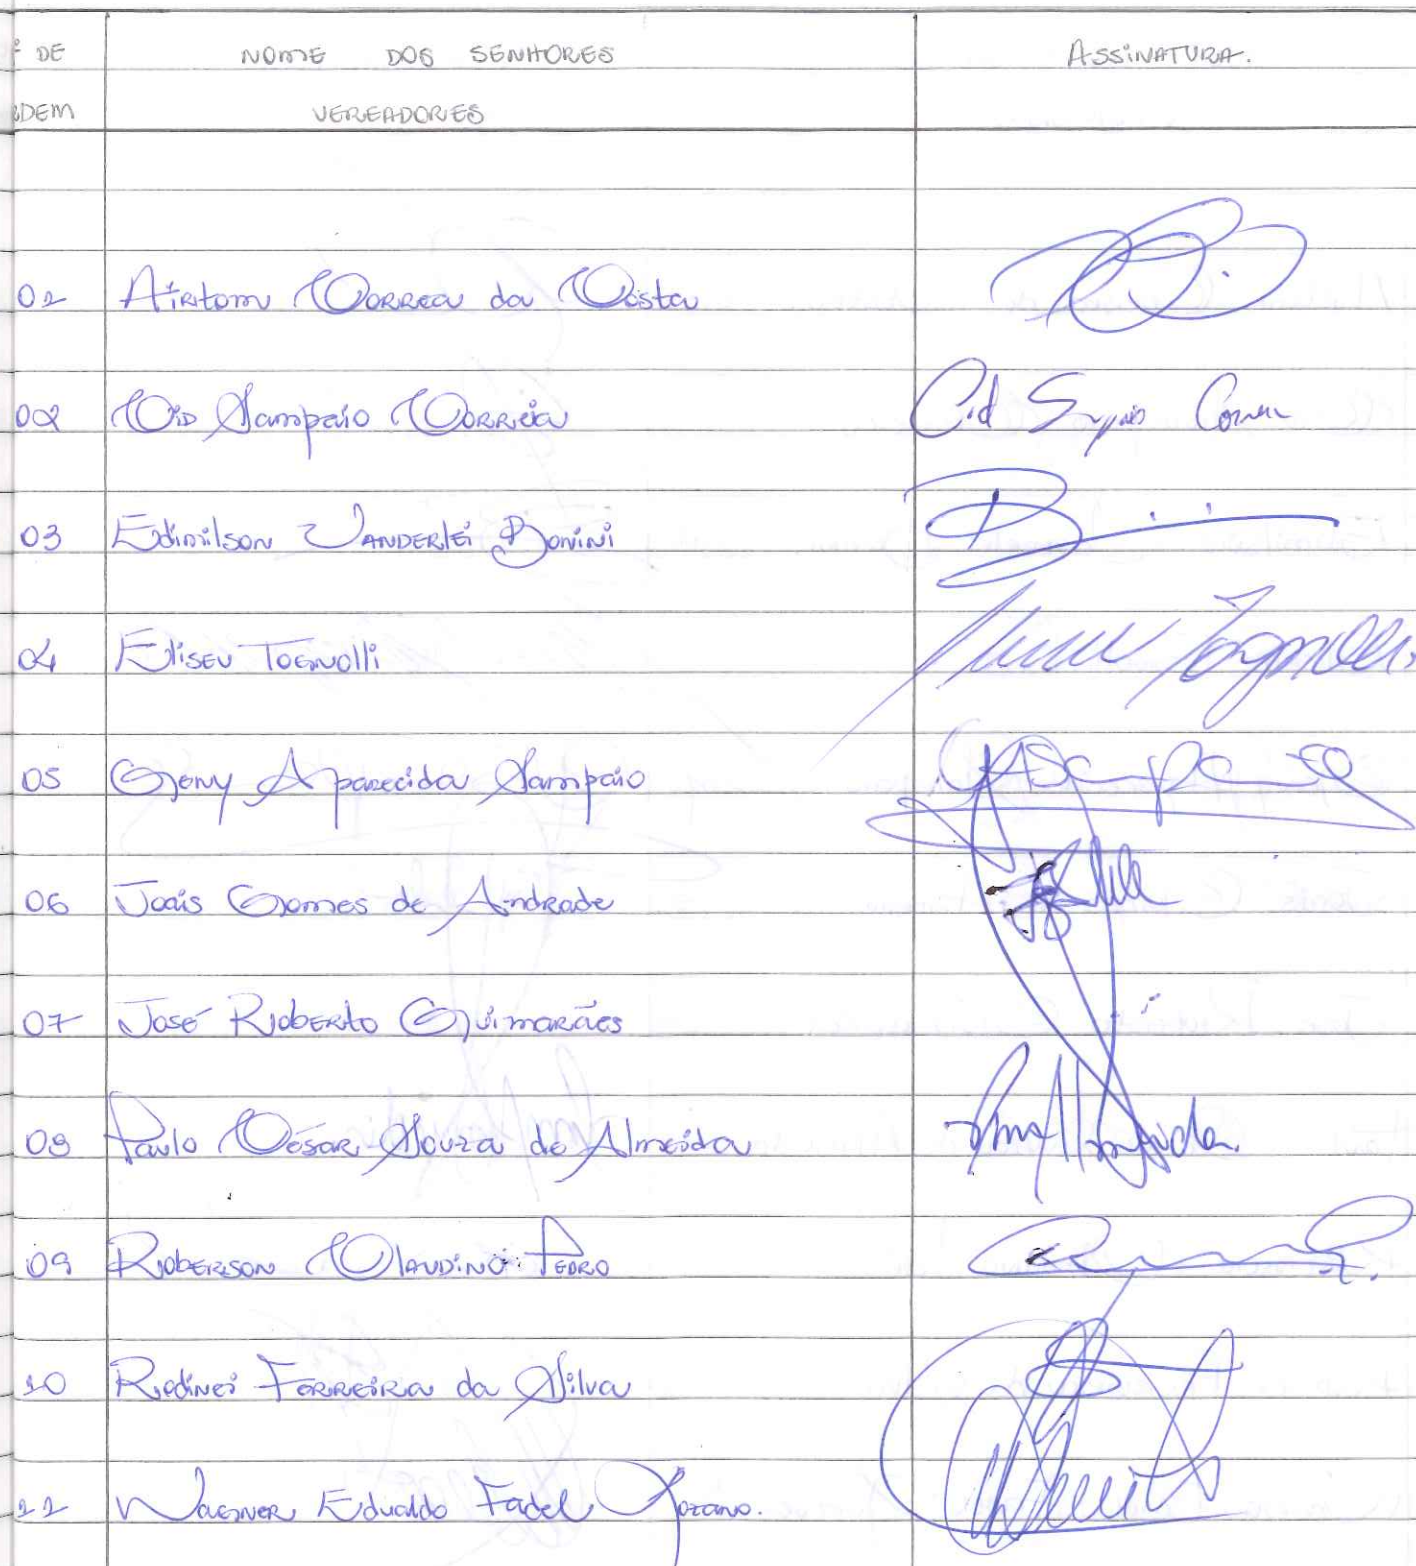 º DE NOME DOS SENHORES ASSINATURA.
RDEM VEREADORES
01 Airton Correa da Costa
02 Cid Sampaio Correia Cid Sampaio Correia
03 Edimilson Vanderlei Bonini
04 Eliseu Tognolli Tognolli
05 Geny Aparecida Sampaio
06 Joais Gomes de Andrade
07 José Roberto Guimarães
08 Paulo César Souza de Almeida
09 Roberson Claudino Pedro
10 Rodinei Ferreira da Silva
11 Wagner Edualdo Fadel Lozano.